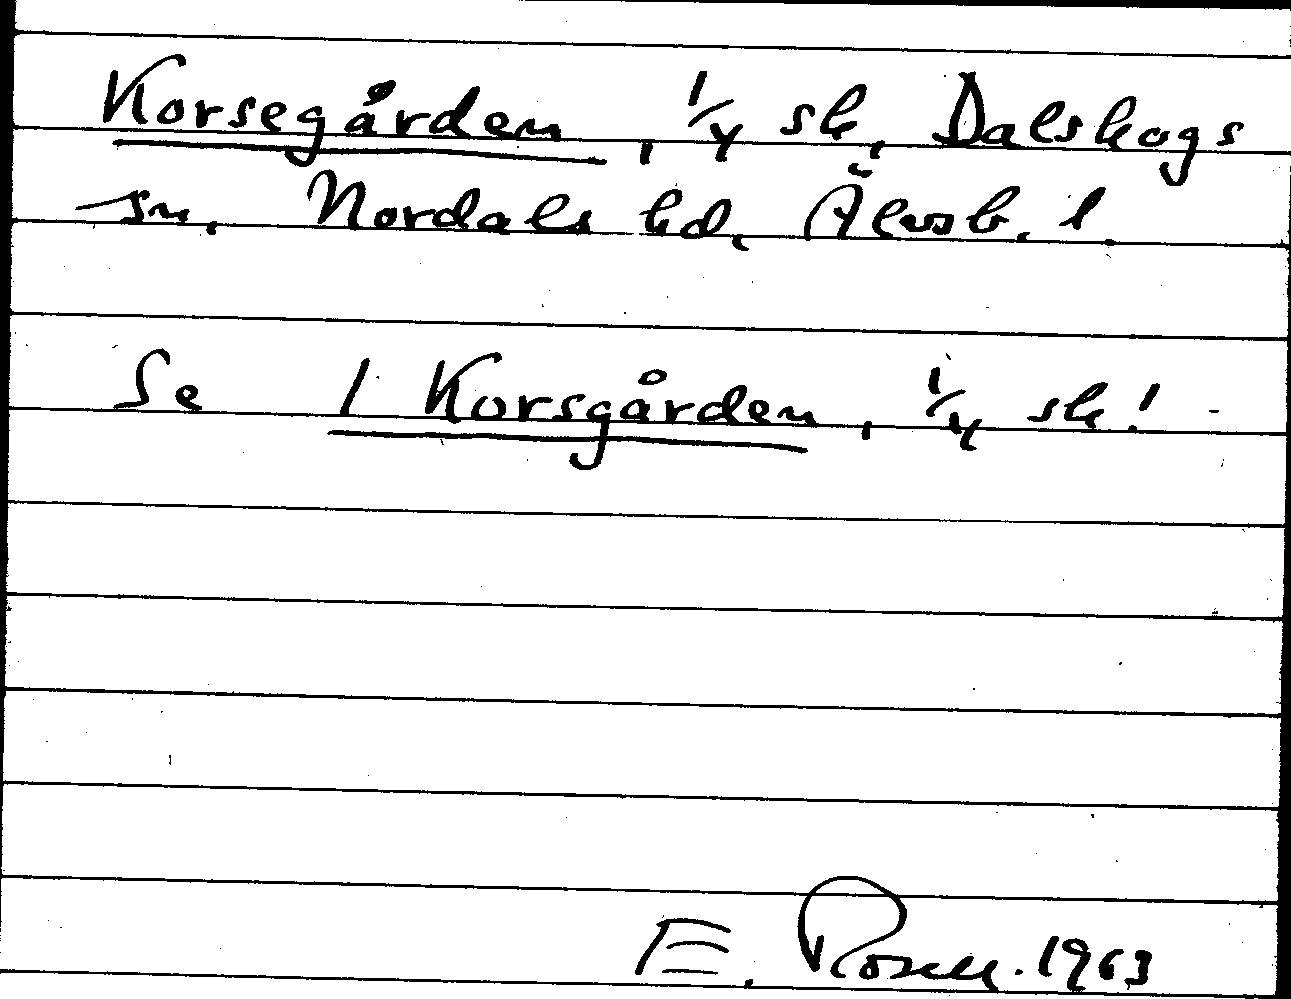 Korsegården, 1/4 sk, Dalskogs
sn. Nordals hd, Älvsb. l.
Se 1 Korsgården, 1/4 sk!
E. Rosell. 1963